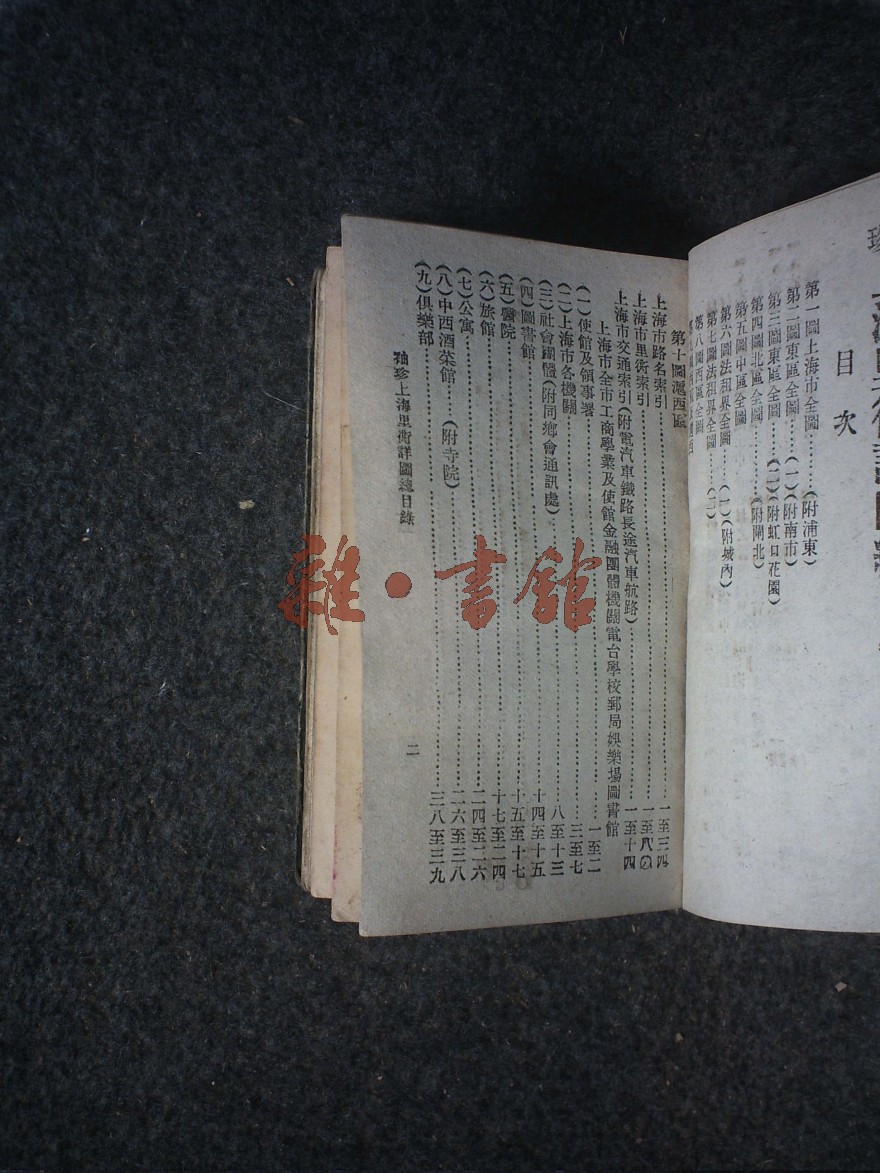 目次
第一圖上海市全圖………(附浦東)
第二圖東區全圖………(一)(附南市)
第三圖東區全圖………(二)(附虹口花園)
第四圖北區全圖………(附閘北)
第五圖中區全圖
第六圖法租界全圖………(一)(附城內)
第七圖法租界全圖………(二)
第八圖西區全圖
第十圖滬西區
上海市路名索引………一至三四
上海市里衖索引………一至八〇
上海市交通索引(附電汽車鐵路長途汽車航路)………一至十四
上海市全市工商學業及使館金融團體機關電台學校郵局娛樂場圖書館
(一)使館及領事署………一至二
(二)上海市各機關………三至七
(三)社會團體(附同鄉會通訊處)………八至十三
(四)圖書館………十四至十五
(五)醫院………十五至十七
(六)旅館………十七至二四
(七)公寓………二四至二六
(八)中西酒菜館………(附寺院)………二六至三八
(九)俱樂部………三八至三九
袖珍上海里衖詳圖總目錄
二
雜·書館